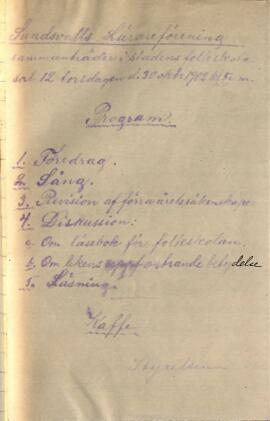 Sundsvalls Lärareförening
sammanträder i stadens folkskola
sal 12 torsdagen d. 30 okt 1902 kl 5 e. m.
Program.
1. Föredrag.
2. Sång.
3. Revision af förra årets räkenskaper
4. Diskussion:
a. Om läsebok för folkskolan.
b. Om lekens uppfostrande betydelse
5. Läsning.
Kaffe.
Styrelsen